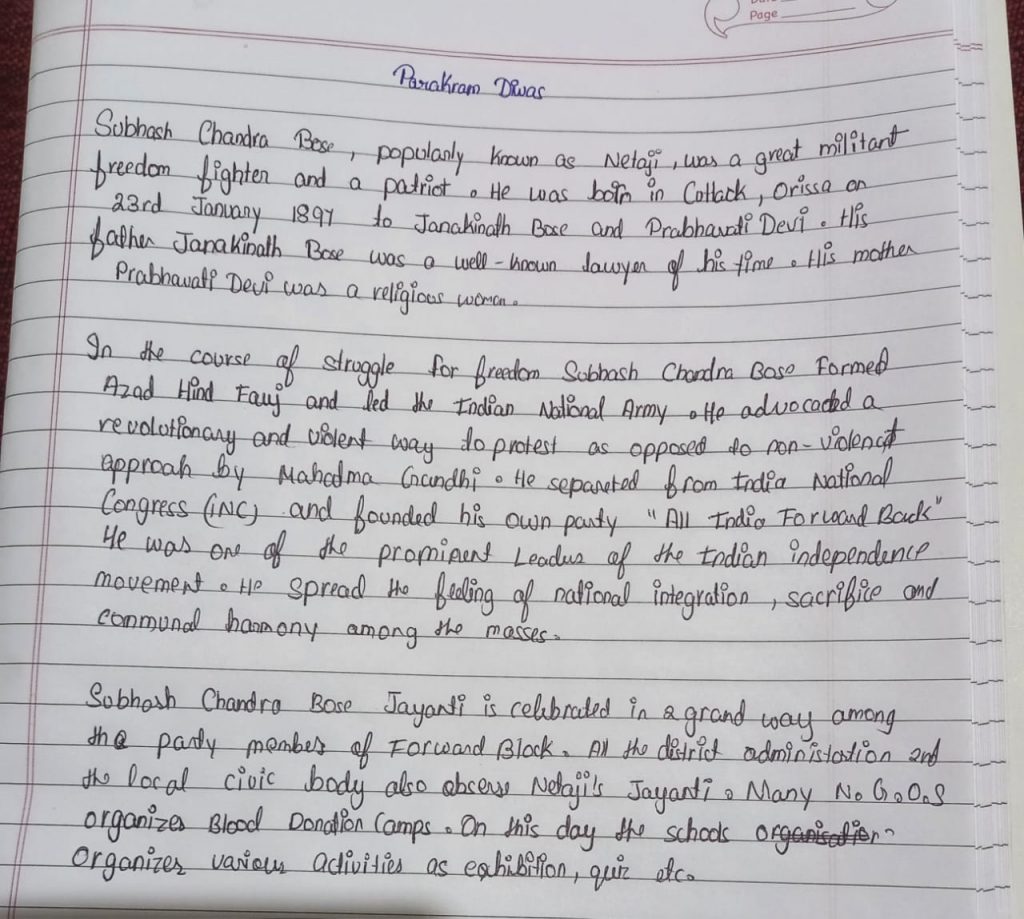 Page
Parakram Diwas
Subhash Chandra Bose, popularly known as Netaji, was a great militant
freedom fighter and a patriot. He was born in Cuttack, Orissa on
23rd January 1897 to Janakinath Bose and Prabhavati Devi. His
father Janakinath Bose was a well-known lawyer of his time. His mother
Prabhavati Devi was a religious woman.
In the course of struggle for freedom Subhash Chandra Bose Formed
Azad Hind Fauj and led the Indian National Army. He advocated a
revolutionary and violent way to protest as opposed to non-violenct
approah by Mahatma Grandhi. He separated from India National
Congress (INC) and founded his own party "All India Forward Back"
He was one of the prominent Leadus of the Indian independence
movement. He spread the feeling of national integration, sacrifice and
communal harmony among the masses.
Subhash Chandra Bose Jayanti is celebrated in a grand way among
the party members of Forward Block. All the district administation and
the local civic body also obscrve Netaji's Jayanti. Many N.G.O.S
organizes Blood Donation Camps. On this day the schools organisation
Organizes various activities as exhibition, quiz etc.